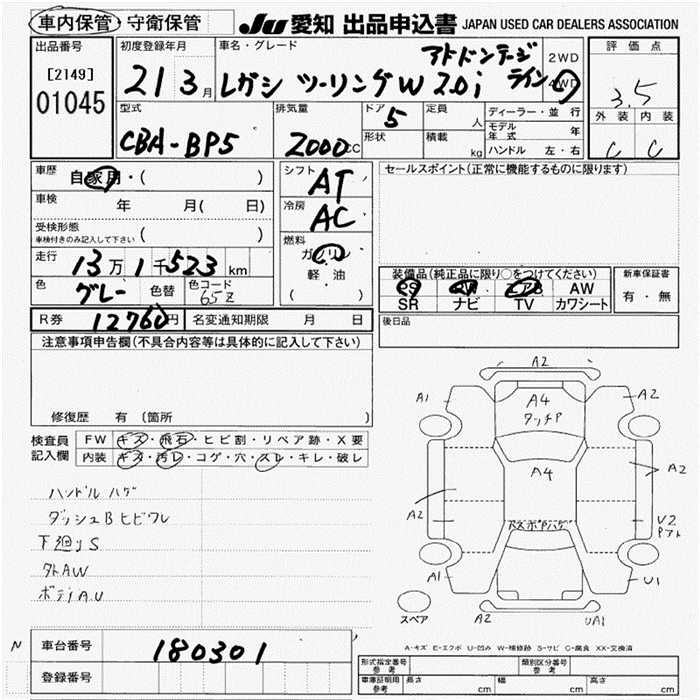 車内保管・守衛保管
JU 愛知 出品申込書 JAPAN USED CAR DEALERS ASSOCIATION
出品番号
[2149]
01045
初度登録年月
21 3月
車名・グレード
レガシ ツーリングW 2.0i
アドバンテージ
ライン
2WD
4WD
評価点
3.5
外装 内装
C C
型式
CBA-BP5
排気量
2000CC
ドア
5
形状
定員
人
積載
kg
ディーラー・並行
モデル年式 年
ハンドル 左・右
車歴 自家用・( )
車検 年 月( 日)
受検形態
車検付きのみ記入して下さい ( )
走行 13万1千523km
色 グレー 色替 色コード 65Z
シフト
AT
冷房
AC
燃料
ガソリン
軽油
( )
セールスポイント(正常に機能するものに限ります)
装備品(純正品に限り○をつけてください)
PS PW エアB AW
SR ナビ TV カワシート
新車保証書
有・無
後日品
R券 12760円 名変通知期限 月 日
注意事項申告欄(不具合内容等は具体的に記入して下さい)
修復歴 有(箇所 )
検査員記入欄
FW キズ・飛石・ヒビ割・リペア跡・X要
内装 キズ・汚レ・コゲ・穴・スレ・キレ・破レ
ハンドル ハゲ
ダッシュB ヒビワレ
下廻りS
外AW
ボディAU
A2
A1
A4
タッチP
A2
A4
A2
A2
U2
A1
U1
A2
UA1
スペア
A-キズ E-エクボ U-凹み W-補修跡 S-サビ C-腐食 XX-交換済
N
車台番号 180301
登録番号
形式指定番号 参考
類別区分番号 参考
車庫証明用 参考 長さ cm 幅 cm 高さ cm